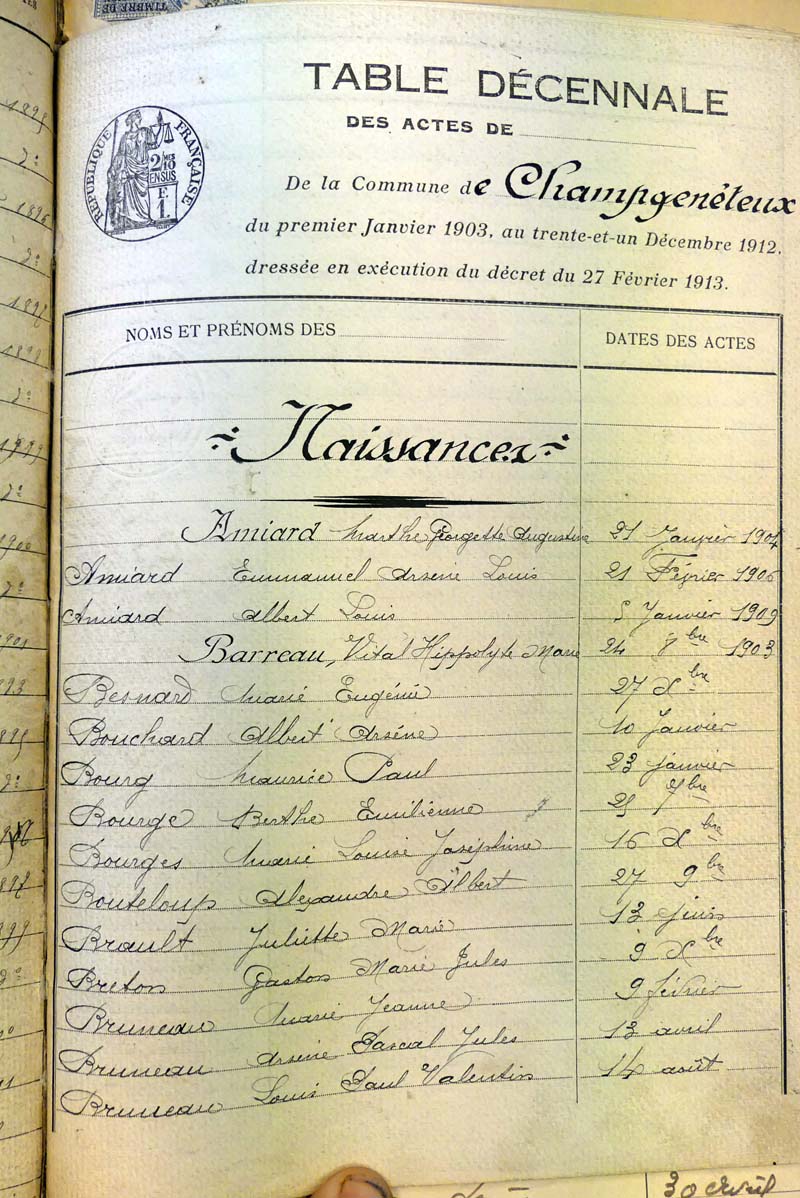 TIMBRE DE
TABLE DÉCENNALE
DES ACTES DE
RÉPUBLIQUE FRANÇAISE
2/10
EN SUS
E
1.
De la Commune de Champgenéteux
du premier Janvier 1903, au trente-et-un Décembre 1912,
dressée en exécution du décret du 27 Février 1913.
NOMS ET PRÉNOMS DES DATES DES ACTES
Naissances
Amiard Marthe Georgette Augustine 21 Janvier 1904
Amiard Emmanuel Arsène Louis 21 Février 1906
Amiard Albert Louis 5 Janvier 1909
Barreau, Vital Hippolyte Marie 24 7bre 1903
Besnard Marie Eugénie 27 Xbre
Bouchard Albert Arsène 10 Janvier
Bourg Maurice Paul 23 janvier
Bourge Berthe Emilienne 25 7bre
Bourges Marie Louise Joséphine 16 Xbre
Bouteloup Alexandre Albert 27 9bre
Brault Juliette Marie 13 juin
Breton Gaston Marie Jules 9 Xbre
Bruneau Marie Jeanne 9 février
Bruneau Arsène Pascal Jules 13 avril
Bruneau Louis Paul Valentin 14 août
30 avril